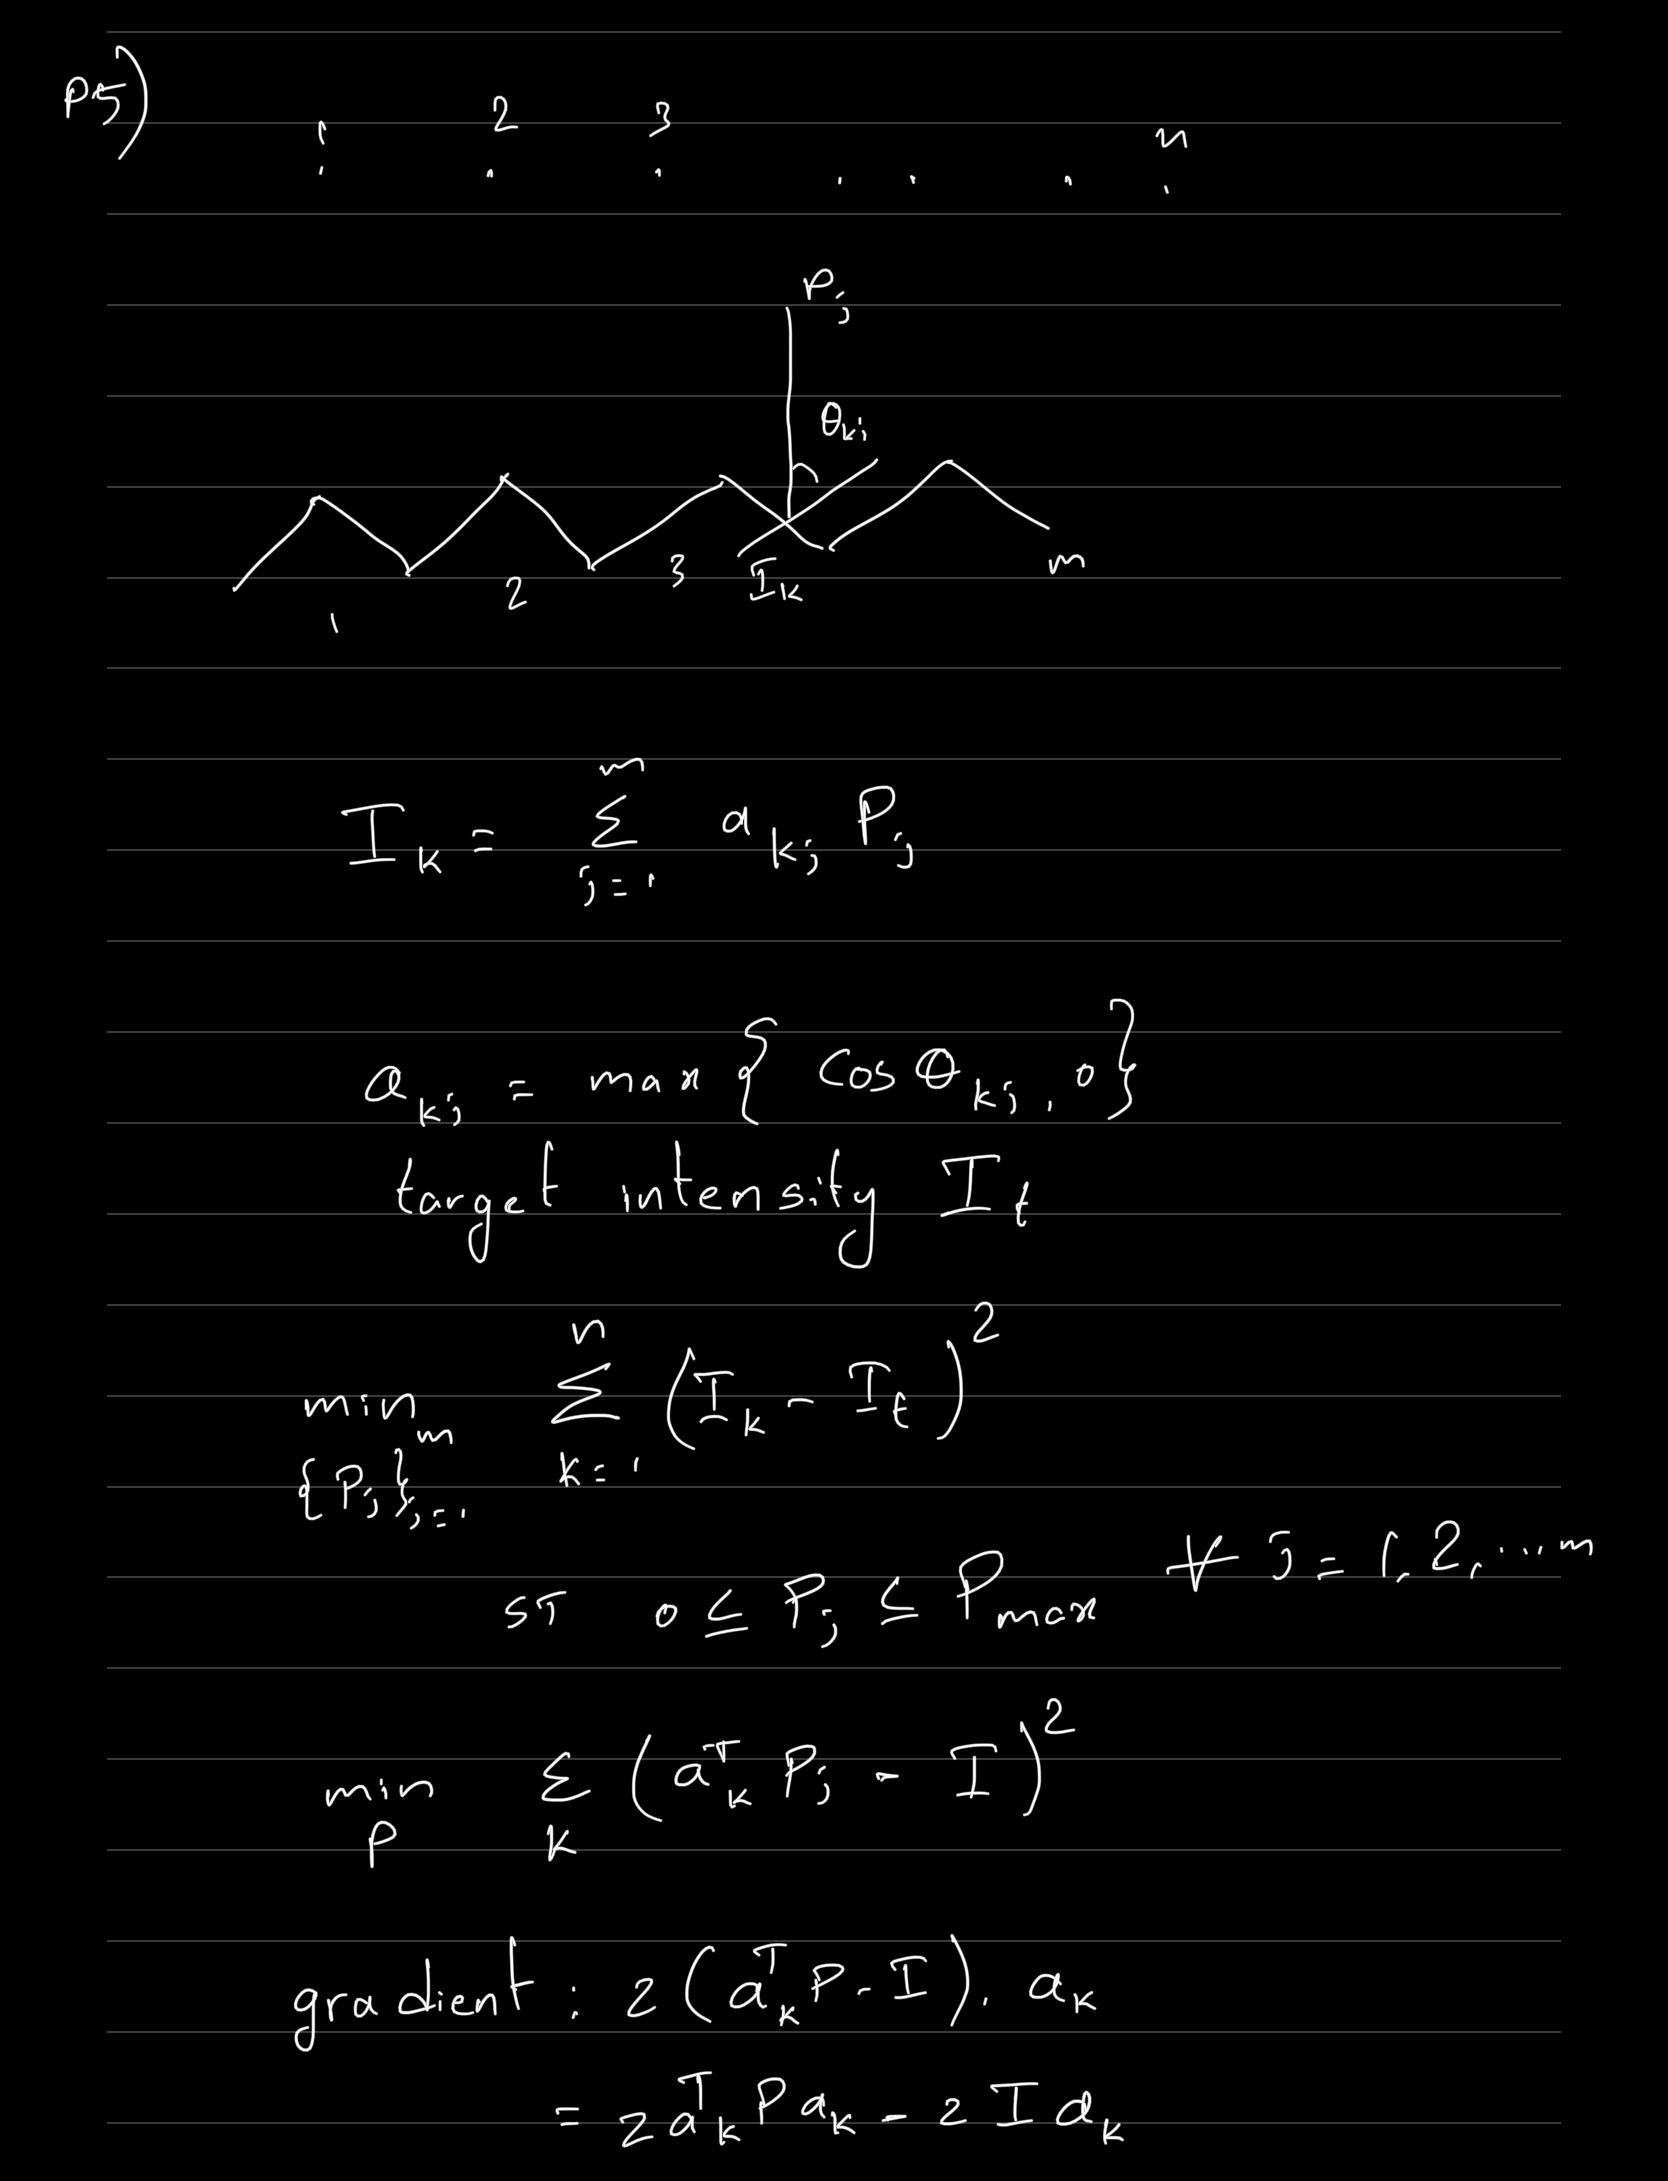 P5)
1 2 3 n
P_j
θ_kj
1 2 3 I_k m
I_k = Σ_{j=1}^{m} a_kj P_j
a_kj = max { cos θ_kj , 0 }
target intensity I_t
min_{{P_j}_{j=1}^{m}} Σ_{k=1}^{n} (I_k - I_t)^2
ST 0 ≤ P_j ≤ P_max ∀ j = 1, 2, ... m
min_P Σ_k (a_k^T P_j - I)^2
gradient : 2 (a_k^T P - I) . a_k
= 2 a_k^T P a_k - 2 I a_k